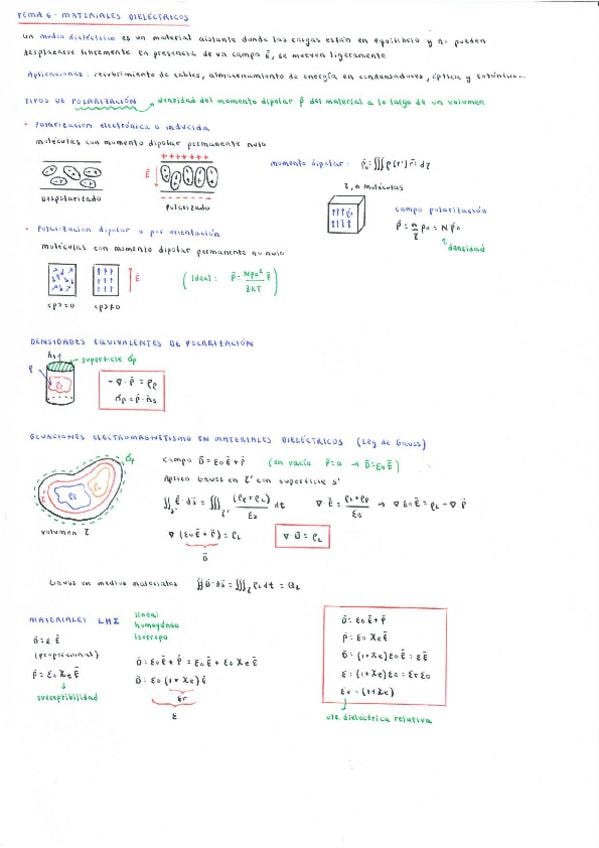 TEMA 6 - MATERIALES DIELÉCTRICOS
un medio dieléctrico es un material aislante donde las cargas están en equilibrio y no pueden
desplazarse libremente en presencia de un campo E, se mueven ligeramente
Aplicaciones: recubrimiento de cables, almacenamiento de energía en condensadores, óptica y
TIPOS DE POLARIZACIÓN → densidad del momento dipolar p del material a lo largo de un volumen
- Polarización electrónica o inducida
moléculas con momento dipolar permanente nulo
Despolarizado
E
Polarizado
momento dipolar:
τ, n moléculas
campo polarización
P = n/τ p₀ = N p₀
densidad
- Polarización dipolar o por orientación
moléculas con momento dipolar permanente no nulo
<p>=0
<p>≠0
E
(Ideal: P = Np₀²/3KT E)
DENSIDADES EQUIVALENTES DE POLARIZACIÓN
superficie σp
-∇·P = ρp
σp = P·n̂s
ECUACIONES ELECTROMAGNETISMO EN MATERIALES DIELÉCTRICOS (Ley de Gauss)
σp
volumen τ
campo D = ε₀E + P (en vacío P=0 → D = ε₀E)
Aplico Gauss en τ' con superficie s'
∯s' E·ds = ∭τ' (ρp+ρL)/ε₀ dτ ∇E = (ρL+ρp)/ε₀ → ∇ε₀E = ρL - ∇P
∇(ε₀E + P) = ρL ∇·D = ρL
D
Gauss en medios materiales ∯D·ds = ∭τ ρL dτ = QL
MATERIALES LHI
lineal
homogéneo
isótropo
D = ε E
(proporcional)
P = ε₀ χe E
susceptibilidad
D = ε₀E + P = ε₀E + ε₀ χe E
D = ε₀ (1+χe) E
εr
ε
D = ε₀E + P
P = ε₀ χe E
D = (1+χe) ε₀E = εE
ε = (1+χe) ε₀ = εr ε₀
εr = (1+χe)
cte. dieléctrica relativa